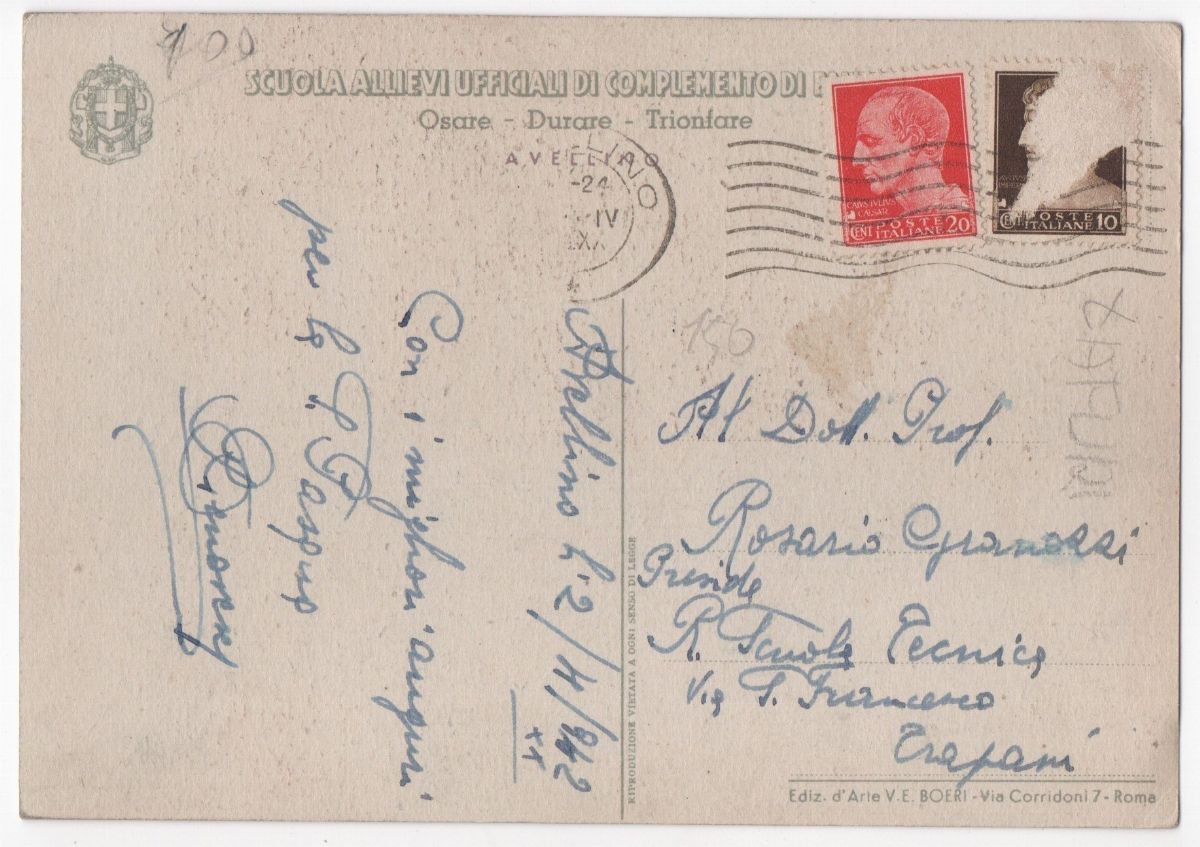 100
SCUOLA ALLIEVI UFFICIALI DI COMPLEMENTO DI
Osare - Durare - Trionfare
AVELLINO
LINO
-24
IV
XX
CAIVS IVLIVS
CAESAR
CENT POSTE
ITALIANE 20
CENT POSTE
ITALIANE 10
150
Avellino li 2/4/942
XX
Con i migliori auguri
per la S. Pasqua
RIPRODUZIONE VIETATA A OGNI SENSO DI LEGGE
Al Dott. Prof.
Rosario Granozzi
Preside
R. Scuola Tecnica
Via S. Francesco
Trapani
Ediz. d'Arte V. E. BOERI - Via Corridoni 7 - Roma